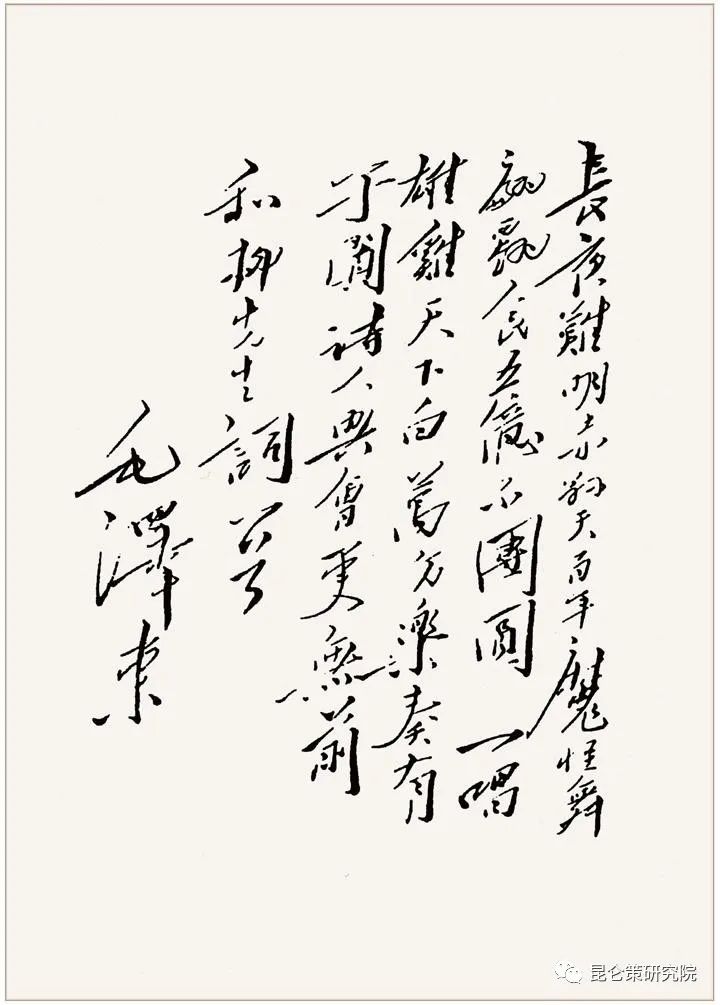 長夜難明赤縣天百年魔怪舞
翩躚人民五億不團圓 一唱
雄雞天下白萬方樂奏有
于闐詩人興會更無前
和柳先生詞首
毛澤東
昆仑策研究院